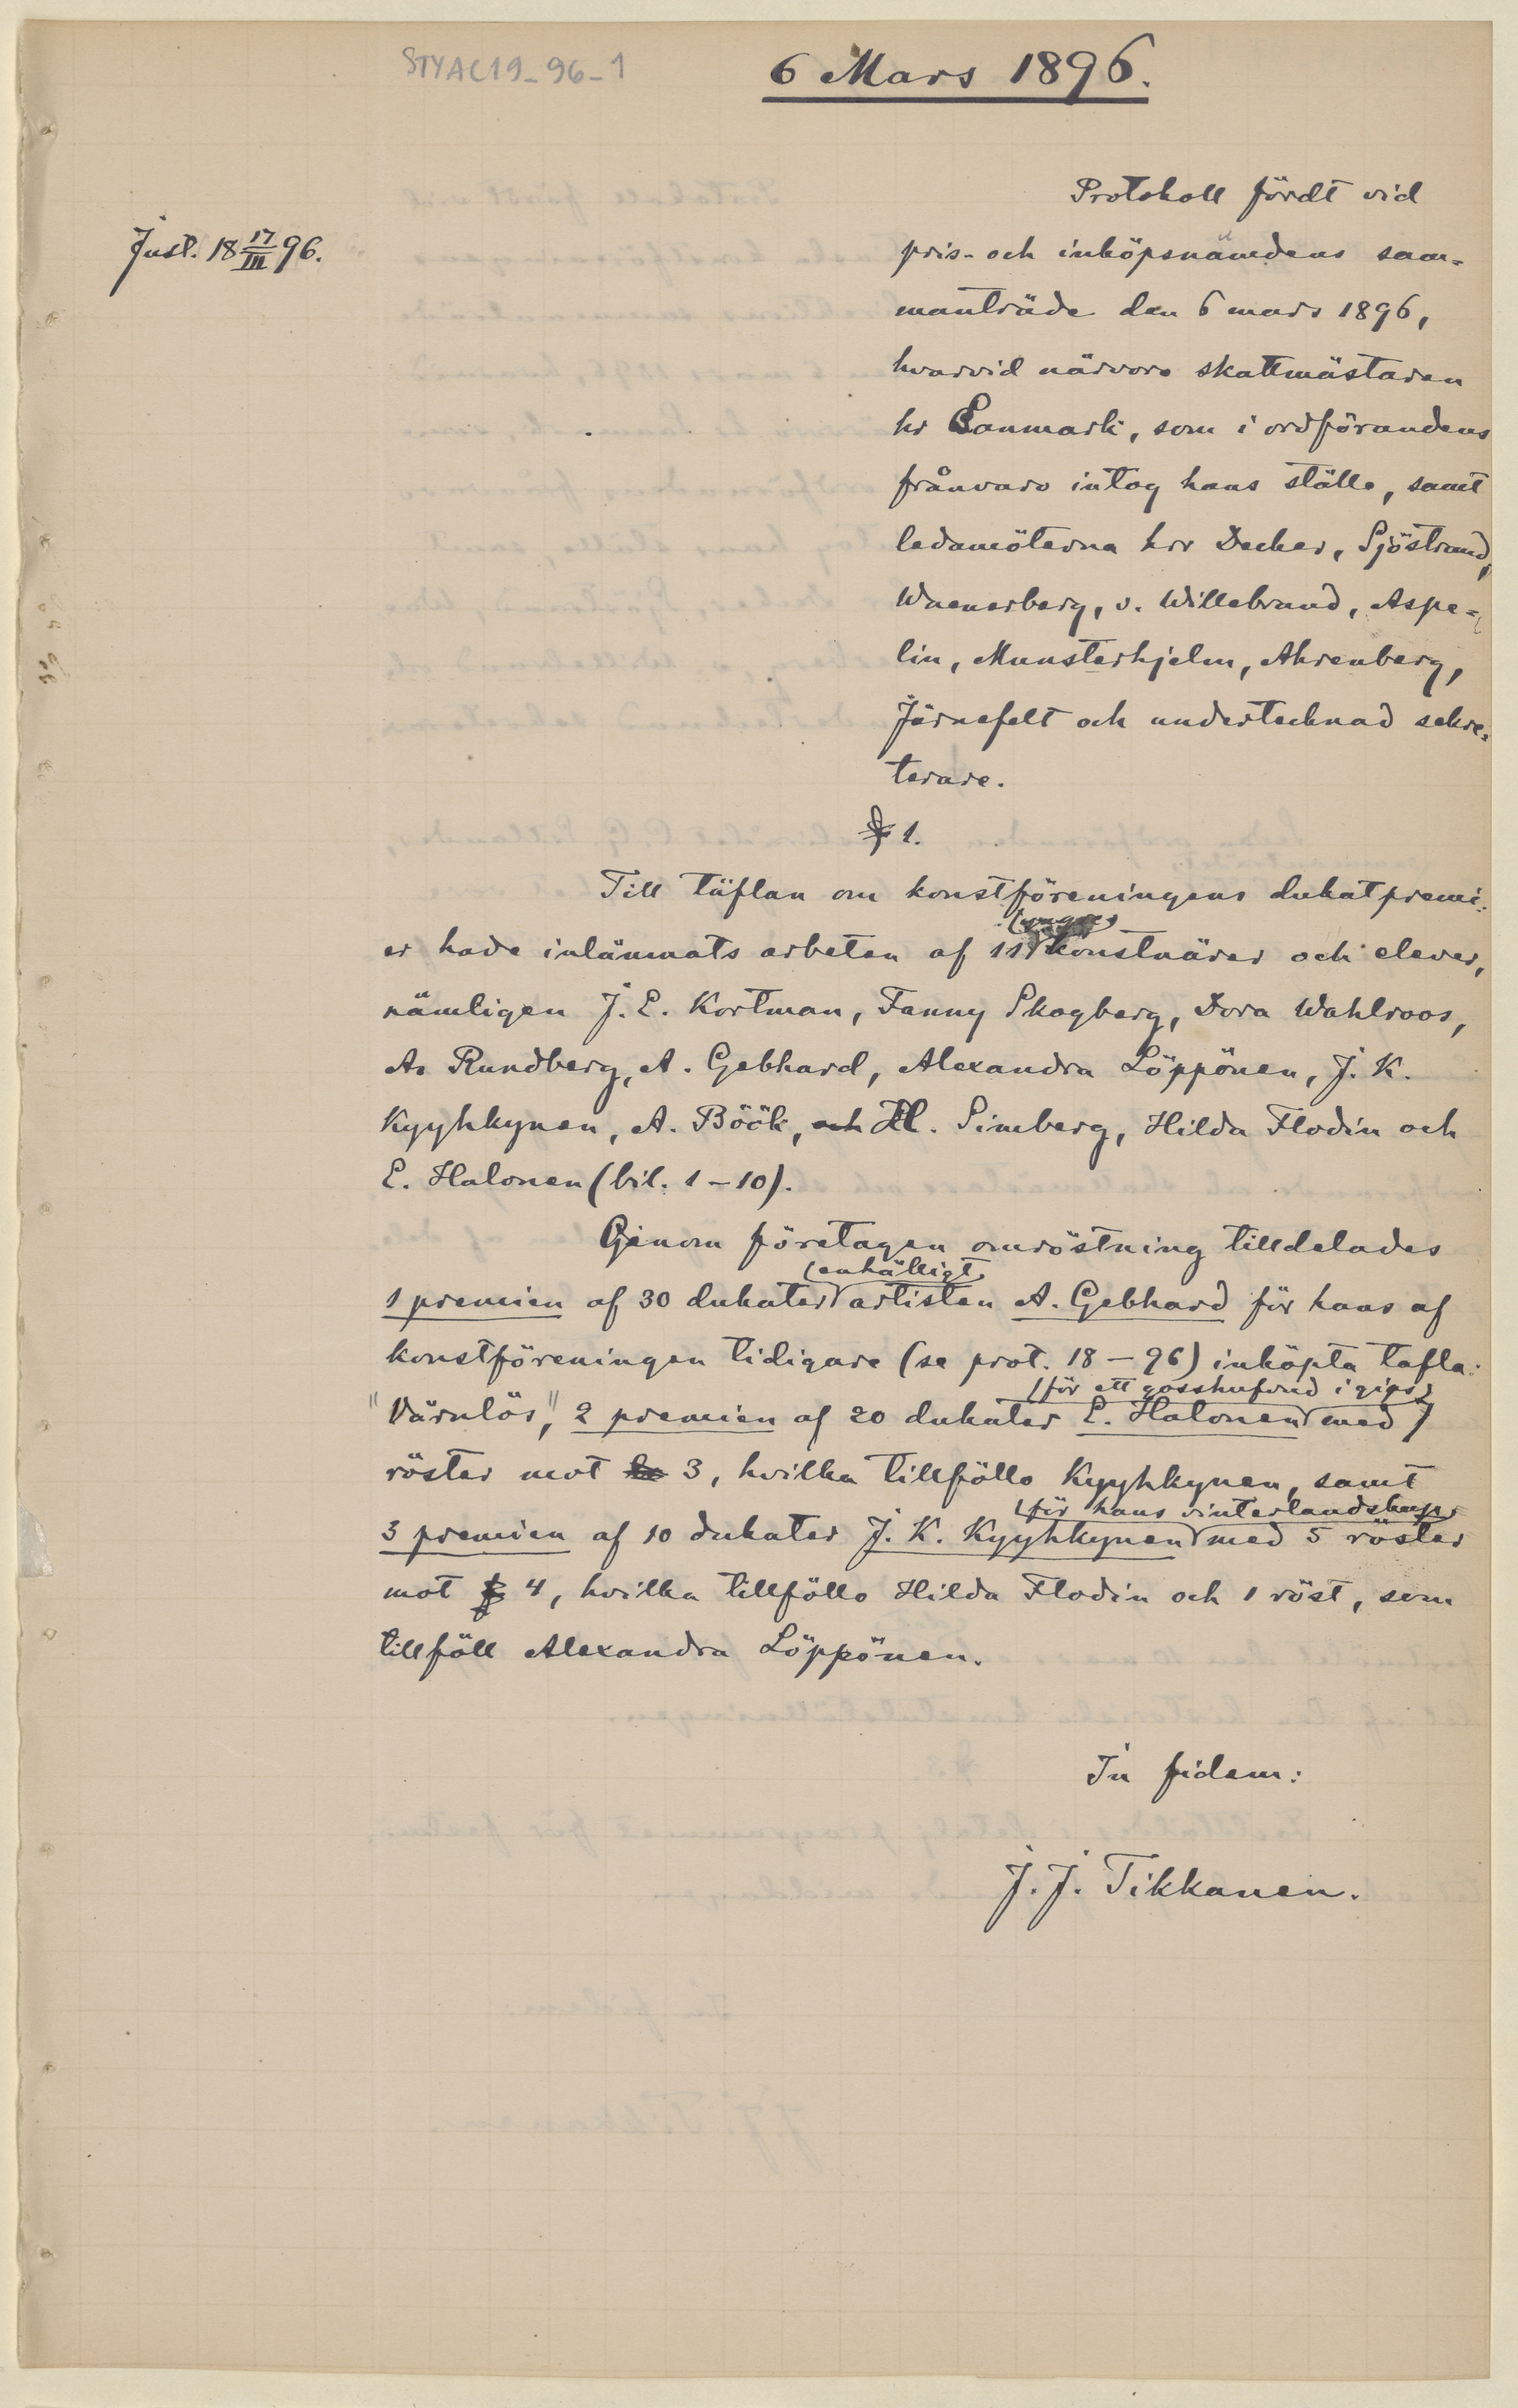 STYAC19_96_1
6 Mars 1896.
Just. 18 17/III 96.
Protokoll fördt vid
pris- och inköpsnämdens sam-
manträde den 6 mars 1896,
hvarvid närvoro skattmästaren
hr Sanmark, som i ordförandens
frånvaro intog hans ställe, samt
ledamöterna hrr Decker, Sjöstrand,
Waenerberg, v. Willebrand, Aspe-
lin, Munsterhjelm, Ahrenberg,
Järnefelt och undertecknad sekre-
terare.
§ 1.
Till täflan om konstföreningens dukatpremi-
er hade inlämnats arbeten af 11 konstnärer och elever,
nämligen J. E. Kortman, Fanny Skogberg, Dora Wahlroos,
A. Rundberg, A. Gebhard, Alexandra Löppönen, J. K.
Kyyhkynen, A. Böök, och H. Simberg, Hilda Flodin och
E. Halonen (bil. 1–10).
Genom företagen omröstning tilldelades
(enhälligt)
1 premien af 30 dukater artisten A. Gebhard för hans af
konstföreningen tidigare (se prot. 18–96) inköpta tafla:
(för ett gosshufvud i gips)
"Värnlös", 2 premien af 20 dukater E. Halonen med 7
röster mot 3, hvilka tillföllo Kyyhkynen, samt
(för hans vinterlandskap)
3 premien af 10 dukater J. K. Kyyhkynen med 5 röster
mot 4, hvilka tillföllo Hilda Flodin och 1 röst, som
tillföll Alexandra Löppönen.
In fidem:
J. J. Tikkanen.